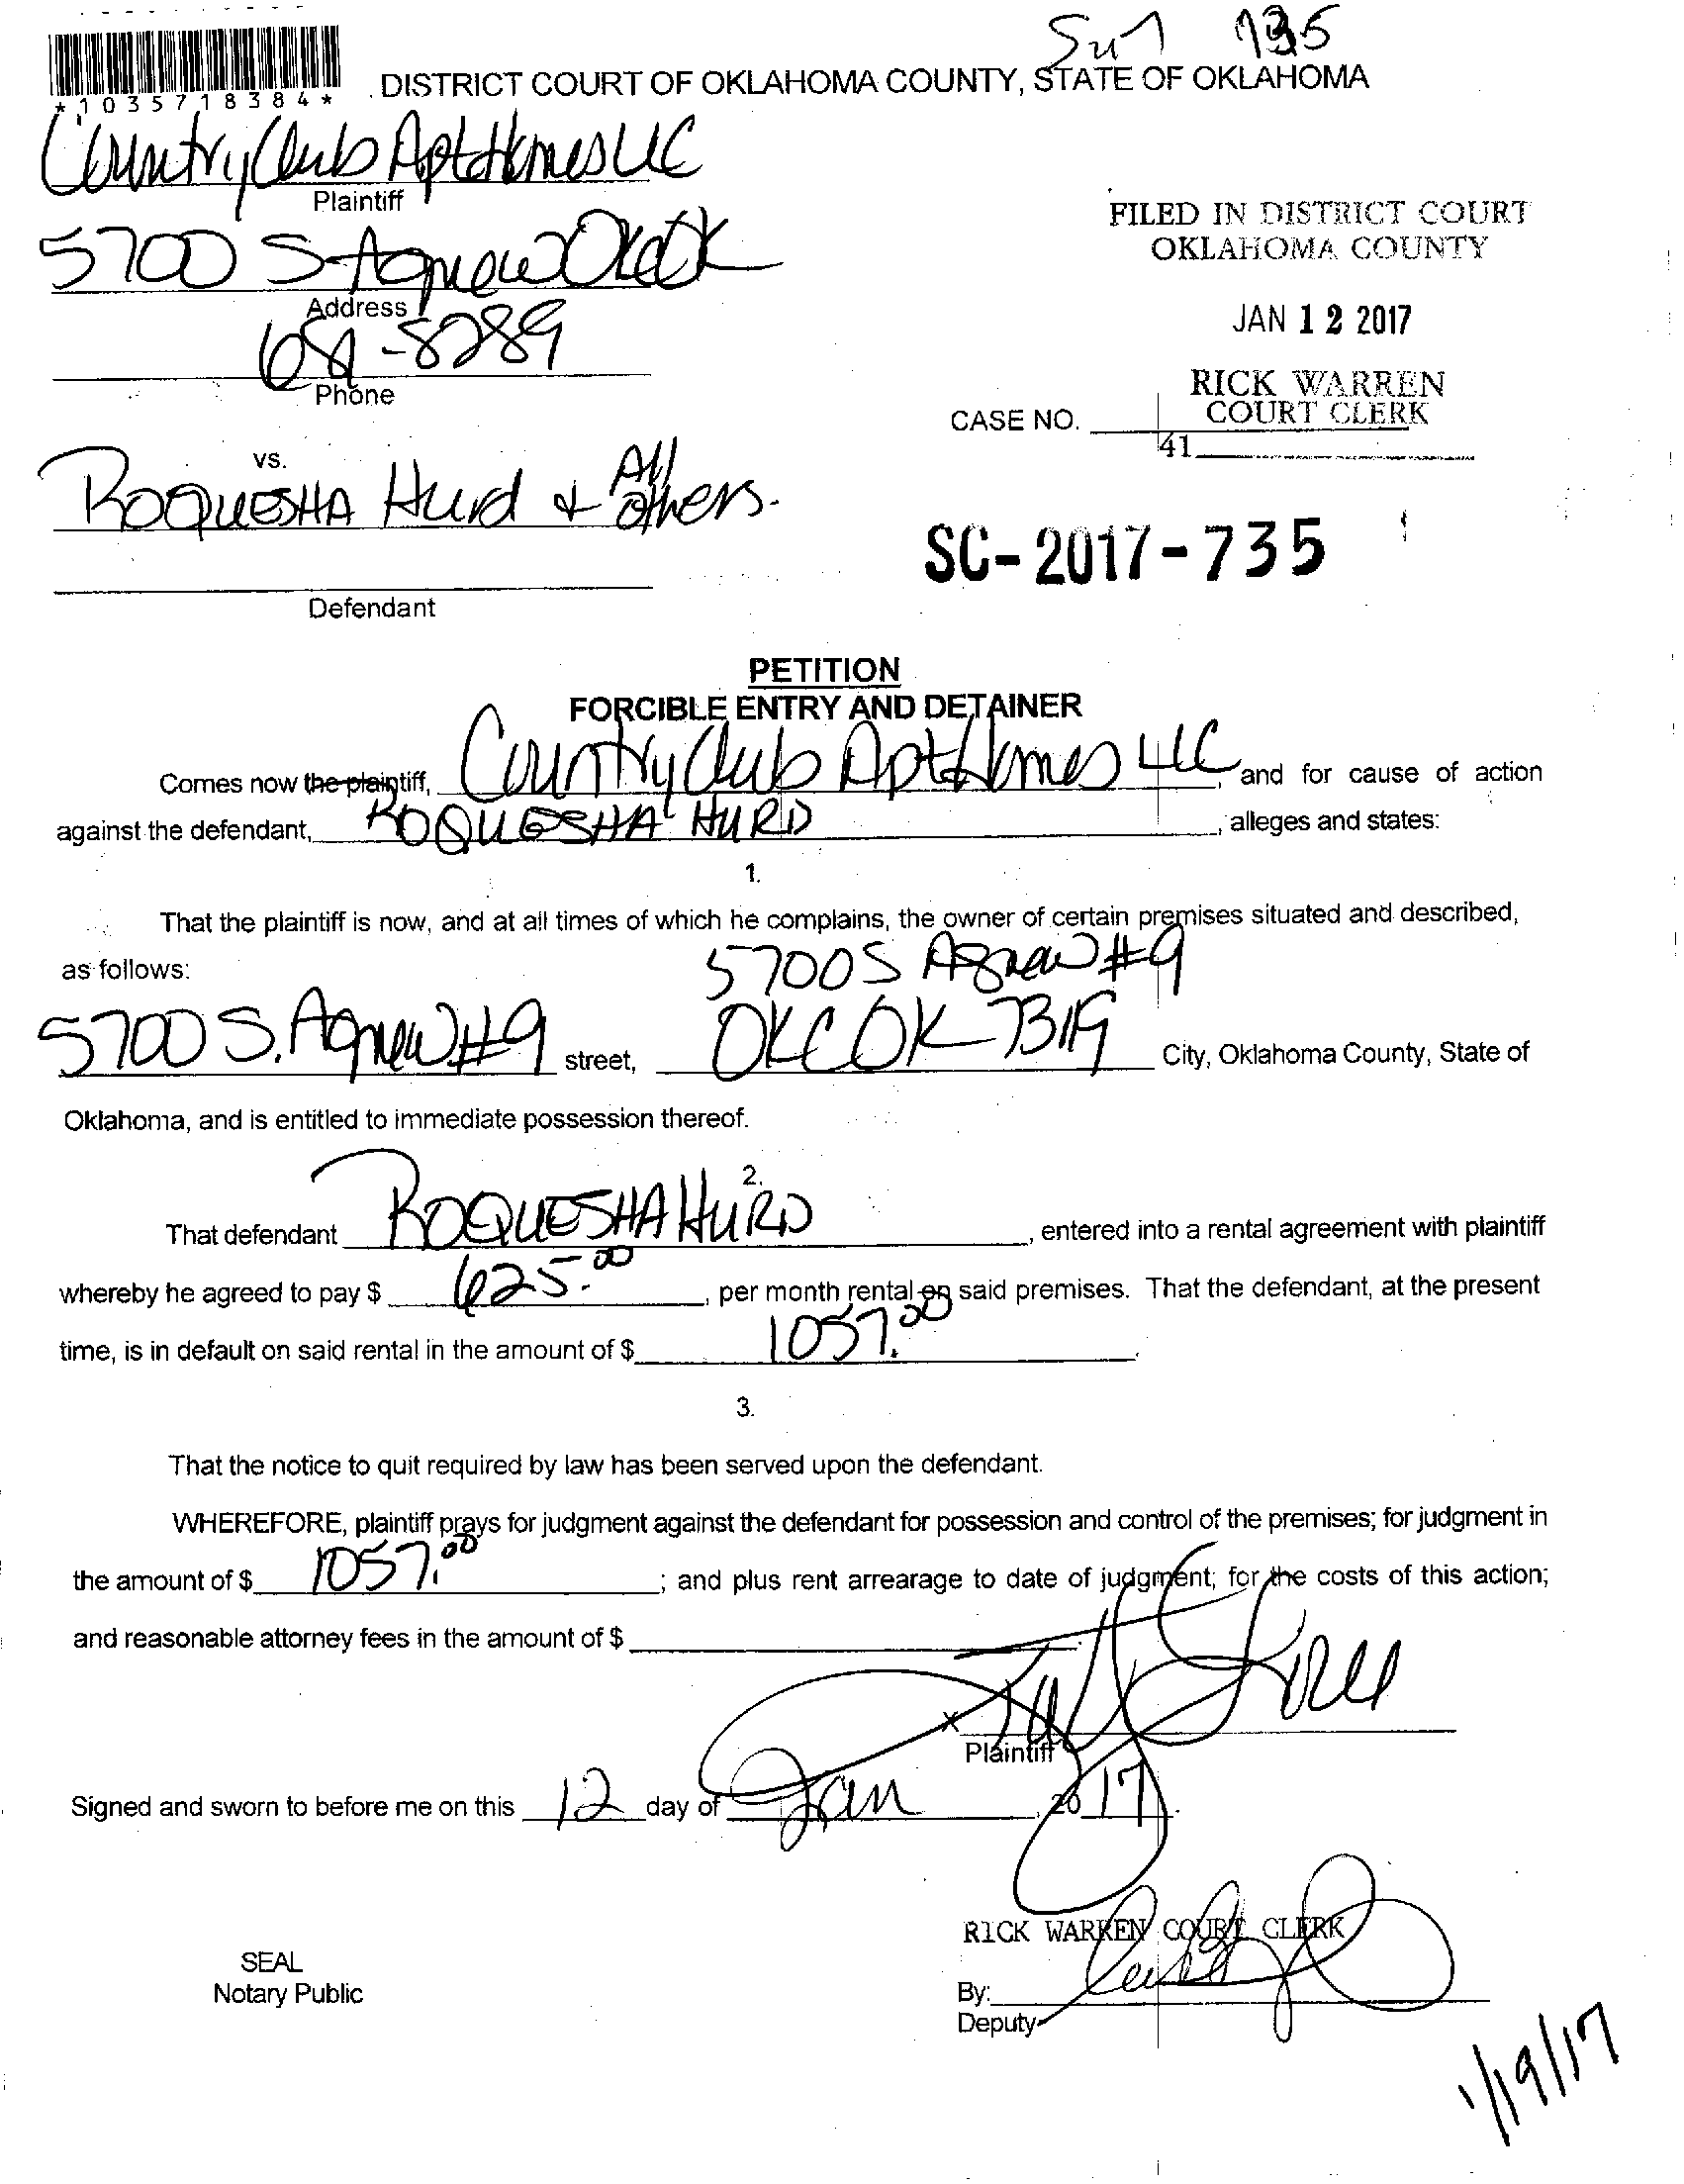 135
*1035718384*
DISTRICT COURT OF OKLAHOMA COUNTY, STATE OF OKLAHOMA
Country Club Apt Homes LLC
Plaintiff
5700 S Agnew
Address
-8289
Phone
FILED IN DISTRICT COURT
OKLAHOMA COUNTY
JAN 12 2017
RICK WARREN
COURT CLERK
CASE NO.
41
vs.
ROQUESHA Hurd & All others.
Defendant
SC-2017-735
PETITION
FORCIBLE ENTRY AND DETAINER
Comes now the plaintiff, Country Club Apt Homes LLC, and for cause of action
against the defendant, ROQUESHA HURD, alleges and states:
1.
That the plaintiff is now, and at all times of which he complains, the owner of certain premises situated and described,
as follows: 5700 S Agnew #9
5700 S. Agnew #9 street, OKC OK 73119 City, Oklahoma County, State of
Oklahoma, and is entitled to immediate possession thereof.
2.
That defendant ROQUESHA HURD, entered into a rental agreement with plaintiff
whereby he agreed to pay $ 625.00, per month rental on said premises. That the defendant, at the present
time, is in default on said rental in the amount of $ 1057.00.
3.
That the notice to quit required by law has been served upon the defendant.
WHEREFORE, plaintiff prays for judgment against the defendant for possession and control of the premises; for judgment in
the amount of $ 1057.00; and plus rent arrearage to date of judgment; for the costs of this action;
and reasonable attorney fees in the amount of $
X
Plaintiff
Signed and sworn to before me on this 12 day of Jan, 2017.
RICK WARREN COURT CLERK
SEAL
Notary Public
By:
Deputy
1/19/17